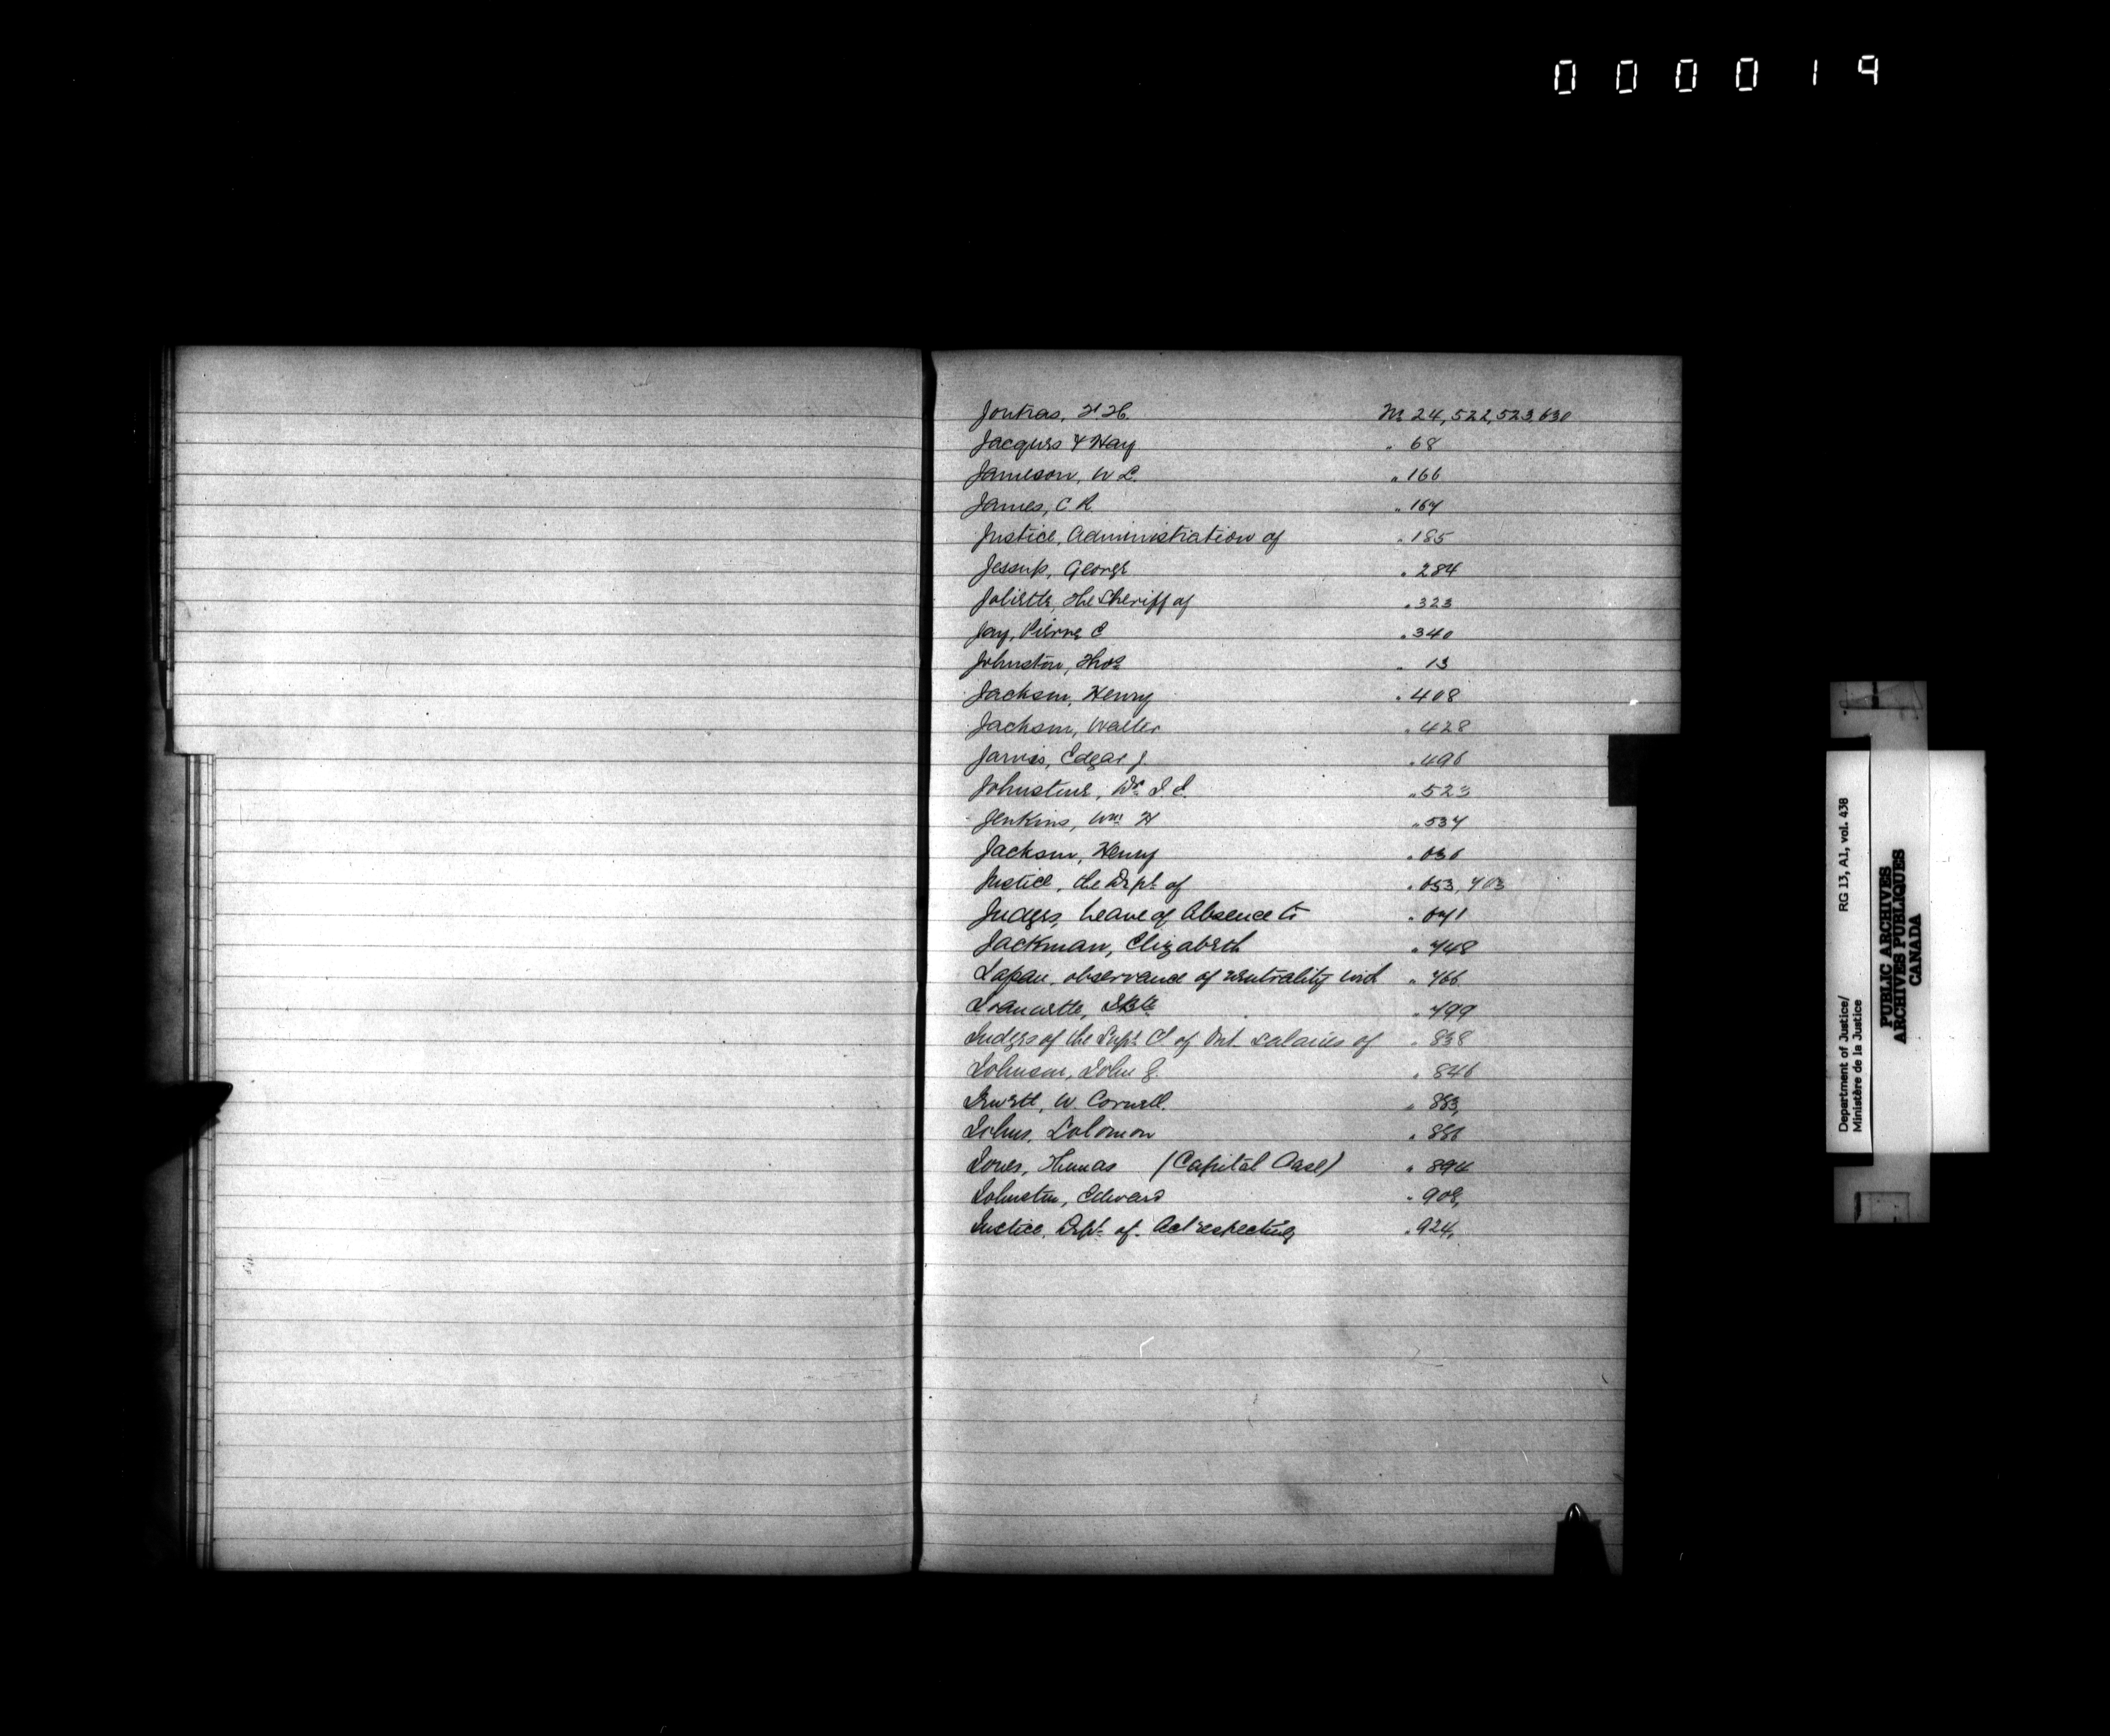 000019
Joutras, H. H. No 24, 522, 523, 630
Jacques & Hay " 68
Jameson, W L. " 166
James, C R. " 167
Justice, Administration of " 185
Jessup, George " 284
Joliette, The Sheriff of " 323
Jay, Pierre C " 340
Johnston, Thos " 13
Jackson, Henry " 408
Jackson, Walter " 428
Jarvis, Edgar J. " 496
Johnstone, Dr. " 523
Jenkins, Wm H " 537
Jackson, Henry " 636
Justice, the Dept of " 653, 703
Judges, Leave of Absence to " 671
Jackman, Elizabeth " 748
Japan, observance of neutrality with " 766
" 799
Judges of the Supr. C. of Ont. salaries of " 838
Johnson, John G. " 846
Jewett, W. Cornell. " 883,
Johns, Solomon " 886
Jones, Thomas (Capital Case) " 894
Johnston, Edward " 908,
Justice, Dept. of. Act respecting " 924,
Department of Justice/
Ministère de la Justice
RG 13, A1, vol. 438
PUBLIC ARCHIVES
ARCHIVES PUBLIQUES
CANADA